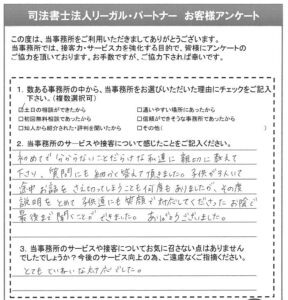 司法書士法人リーガル・パートナー お客様アンケート
この度は、当事務所をご利用いただきましてありがとうございます。
当事務所では、接客力・サービス力を強化する目的で、皆様にアンケートの
ご協力を頂いております。お手数ですが、ご協力下されば幸いです。
1. 数ある事務所の中から、当事務所をお選びいただいた理由にチェックをご記入
下さい。(複数選択可)
☑土日の相談ができたから □通いやすい場所にあったから
□初回無料相談であったから □信頼ができそうな事務所であったから
□知人から紹介された・評判を聞いたから □その他(　　)
2. 当事務所のサービスや接客について感じたことをご記入ください。
初めてで分からないことだらけな私達に親切に教えて
下さり、質問にも細かく答えて頂きました。子供が3人いて
途中お話をさえ切ってしまうことも何度もありましたが、その度
説明をとめて子供達にも笑顔で対応してくださったお陰で
最後まで聞くことができました。ありがとうございました。
3. 当事務所のサービスや接客についてお気に召さない点はありません
でしたでしょうか？今後のサービス向上の為、ご遠慮なくご指摘ください。
とてもていねいな対応でした。